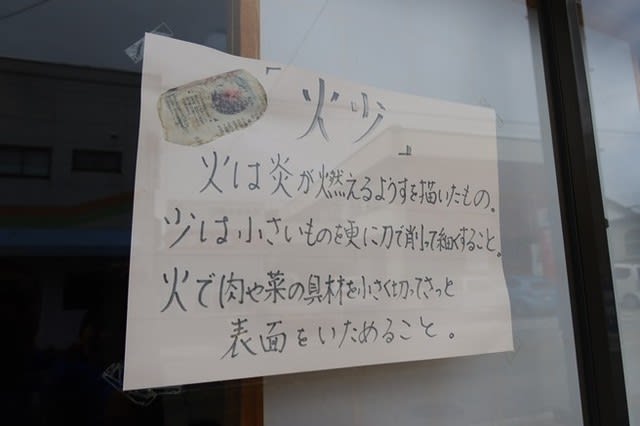 「火少」
火は炎が燃えるようすを描いたもの。
少は小さいものを更に刀で削って細くすること。
火で肉や菜の具材を小さく切ってさっと
表面をいためること。